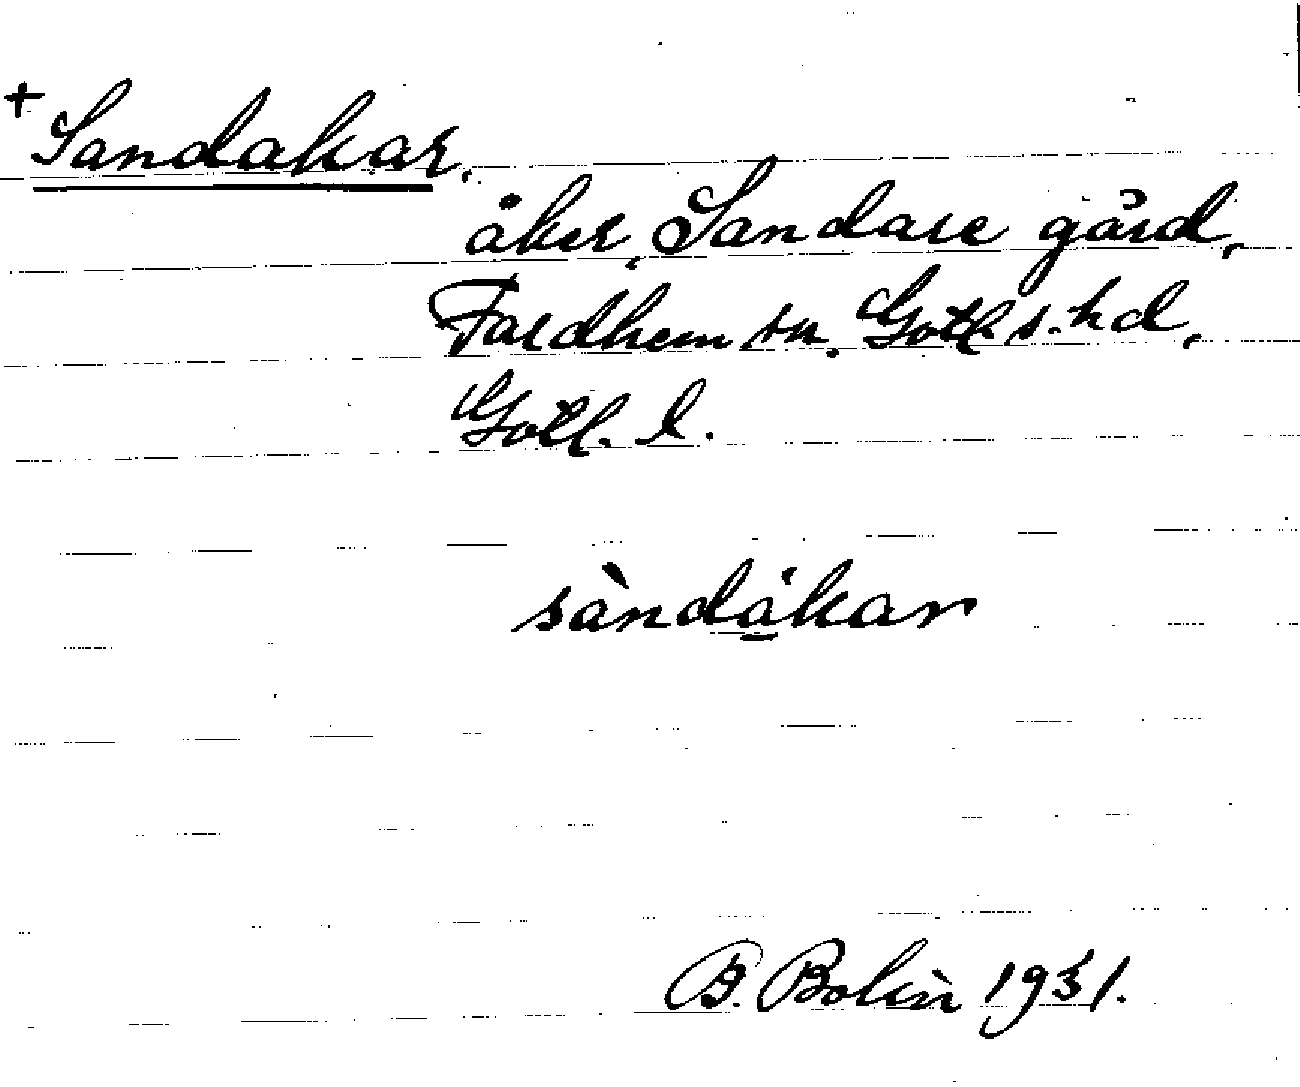 + Sandakar.
åker, Sandare gård,
Fardhem sn. Gotl. s. hd,
Gotl. l.
sàndákar
B. Bolin 1931.